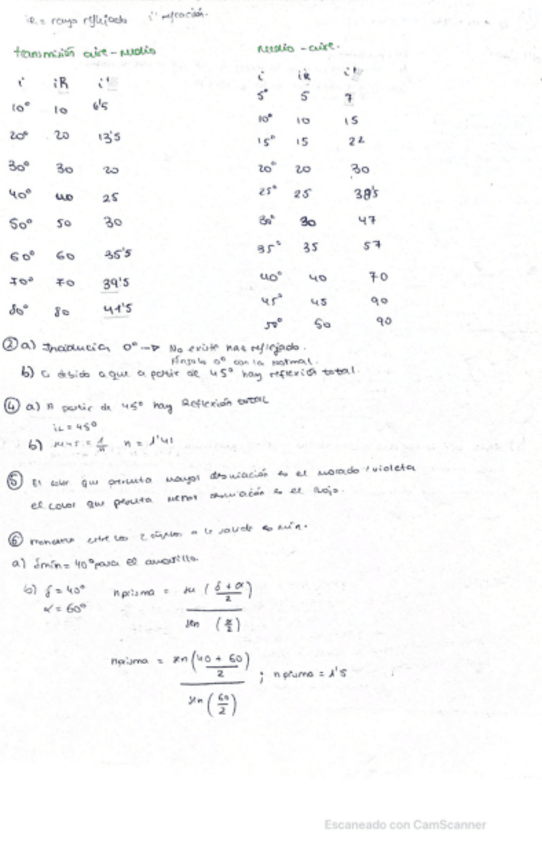 iR = rayo reflejado i' refracción.
transmisión aire-medio
i iR i'
10° 10 6'5
20° 20 13'5
30° 30 20
40° 40 25
50° 50 30
60° 60 35'5
70° 70 39'5
80° 80 41'5
medio-aire.
i iR i'
5° 5 7
10° 10 15
15° 15 22
20° 20 30
25° 25 38'5
30° 30 47
35° 35 57
40° 40 70
45° 45 90
50° 50 90
② a) 0° → No existe reflejado.
Ángulo 0° con la normal.
b) debido a que a partir de 45° hay reflexión total.
④ a) A partir de 45° hay Reflexión total
= 45°
b) n = 1'41
⑤ El color que presenta mayor desviación es el morado/violeta
el color que presenta menor desviación es el Rojo.
⑥ 
a) δmin = 40° para el amarillo.
b) δ = 40° nprisma = sen ((δ+α)/2) / sen (α/2)
α = 60°
nprisma = sen ((40+60)/2) / sen (60/2) ; nprisma = 1'5
Escaneado con CamScanner